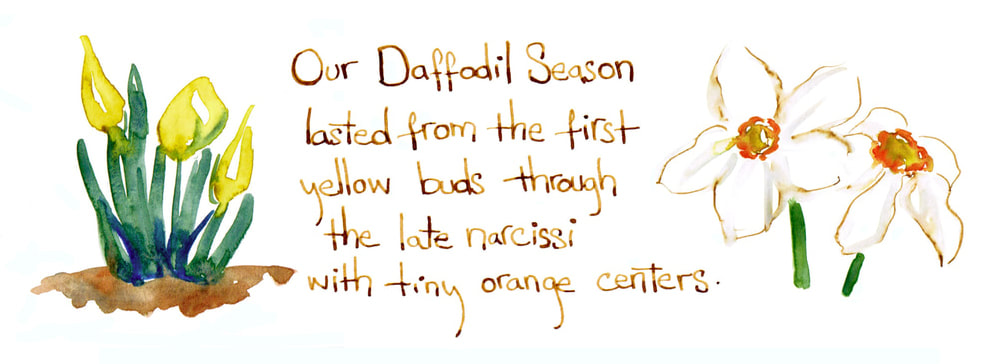 Our Daffodil Season
lasted from the first
yellow buds through
the late narcissi
with tiny orange centers.